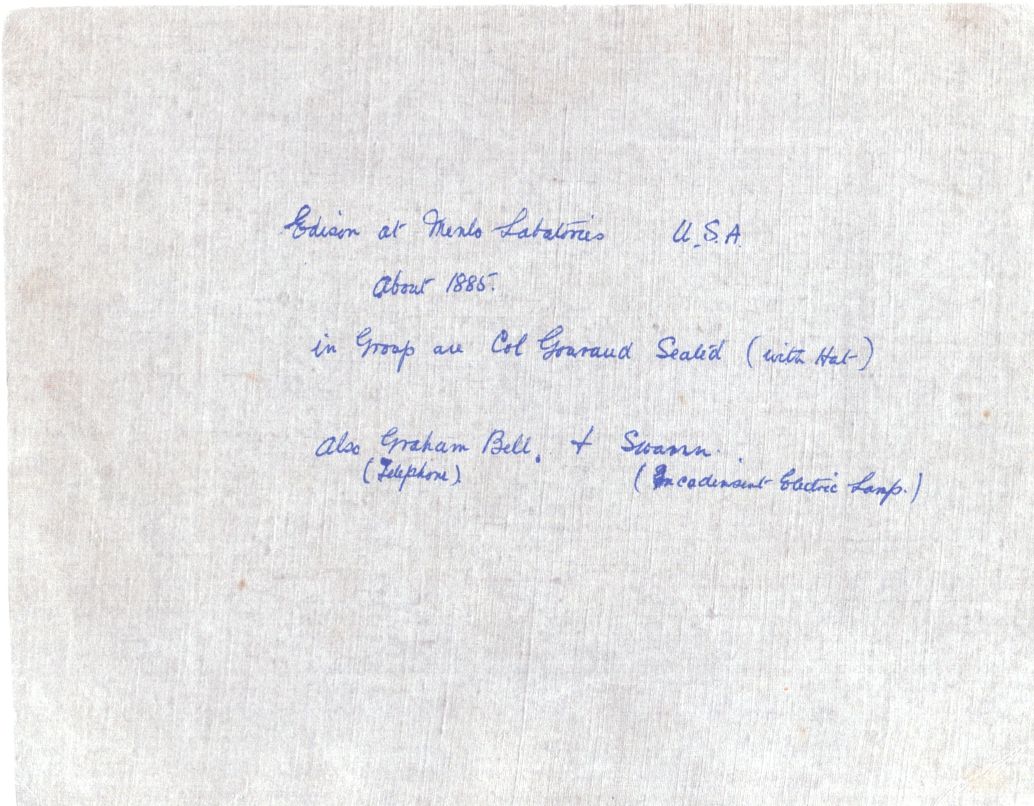 Edison at Menlo Labatories U.S.A.
About 1885.
in Group are Col Gouraud Seated (with Hat)
Also Graham Bell. & Swann.
(Telephone). (Incadensent Electric Lamp.)